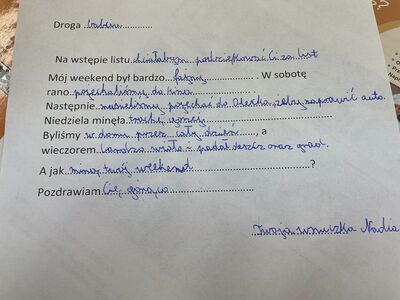 Droga babciu
Na wstępie listu chciałabym podziękować Ci za list
Mój weekend był bardzo fajny. W sobotę
rano pojechaliśmy do kina.
Następnie musieliśmy pojechać do Olecka, żeby naprawić auto.
Niedziela minęła trochę gorzej.
Byliśmy w domu przez cały dzień, a
wieczorem bardzo wiało i padał deszcz oraz grad.
A jak minął twój weekend?
Pozdrawiam Cię gorąco
Twoja wnuczka Nadia